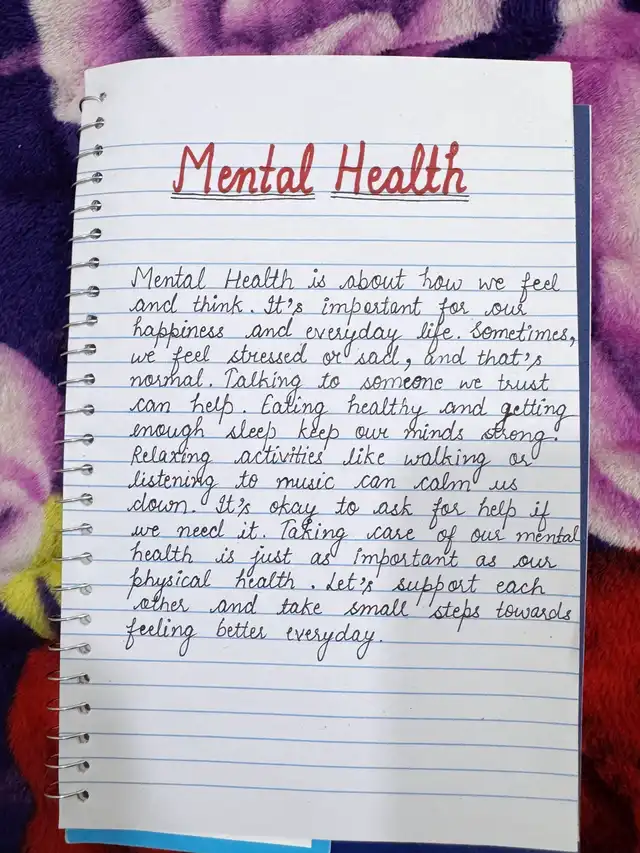 Mental Health
Mental Health is about how we feel
and think. It's important for our
happiness and everyday life. Sometimes,
we feel stressed or sad, and that's
normal. Talking to someone we trust
can help. Eating healthy and getting
enough sleep keep our minds strong.
Relaxing activities like walking or
listening to music can calm us
down. It's okay to ask for help if
we need it. Taking care of our mental
health is just as important as our
physical health. Let's support each
other and take small steps towards
feeling better everyday.